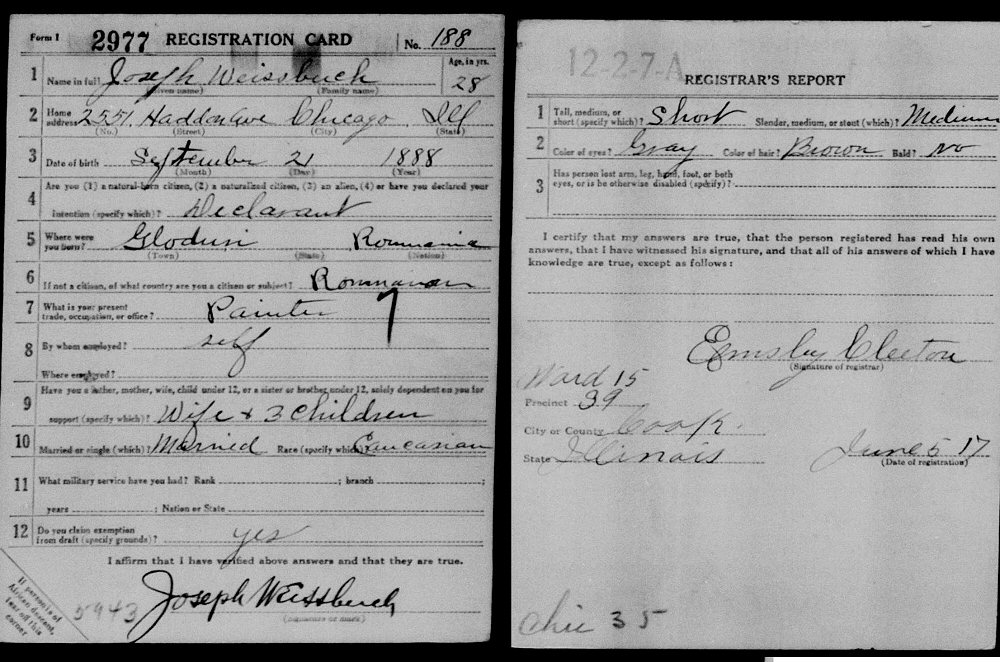 Form 1 2977 REGISTRATION CARD No. 188
1 Name in full Joseph Weissbuch Age, in yrs. 28
(Given name) (Family name)
2 Home address 2551 Haddon Ave Chicago Ill
(No.) (Street) (City) (State)
3 Date of birth September 21 1888
(Month) (Day) (Year)
4 Are you (1) a natural-born citizen, (2) a naturalized citizen, (3) an alien, (4) or have you declared your
intention (specify which)? Declarant
5 Where were you born? Roumania
(Town) (State) (Nation)
6 If not a citizen, of what country are you a citizen or subject? Roumanian
7 What is your present trade, occupation, or office? Painter
8 By whom employed? self
Where employed?
9 Have you a father, mother, wife, child under 12, or a sister or brother under 12, solely dependent on you for
support (specify which)? Wife & 3 children
10 Married or single (which)? Married Race (specify which)? Caucasian
11 What military service have you had? Rank ; branch ;
years ; Nation or State
12 Do you claim exemption from draft (specify grounds)? yes
I affirm that I have verified above answers and that they are true.
Joseph Weissbuch
(Signature or mark)
If person is of
African descent,
tear off this
corner
5943
12-2-7-A
REGISTRAR'S REPORT
1 Tall, medium, or short (specify which)? Short Slender, medium, or stout (which)? Medium
2 Color of eyes? Gray Color of hair? Brown Bald? no
3 Has person lost arm, leg, hand, foot, or both
eyes, or is he otherwise disabled (specify)?
I certify that my answers are true, that the person registered has read his own
answers, that I have witnessed his signature, and that all of his answers of which I have
knowledge are true, except as follows:
Cleeton
(Signature of registrar)
Ward 15
Precinct 39
City or County Cook.
State Illinois June 5 17
(Date of registration)
Chic 35